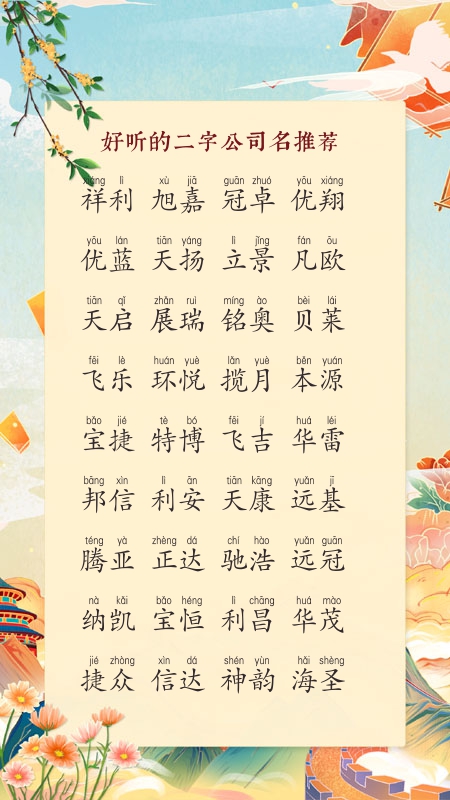 好听的二字公司名推荐
xiáng lì xù jiā guān zhuó yōu xiáng
祥利 旭嘉 冠卓 优翔
yōu lán tiān yáng lì jǐng fán ōu
优蓝 天扬 立景 凡欧
tiān qǐ zhǎn ruì míng ào bèi lái
天启 展瑞 铭奥 贝莱
fēi lè huán yuè lǎn yuè běn yuán
飞乐 环悦 揽月 本源
bǎo jié tè bó fēi jí huá léi
宝捷 特博 飞吉 华雷
bāng xìn lì ān tiān kāng yuǎn jī
邦信 利安 天康 远基
téng yà zhèng dá chí hào yuǎn guān
腾亚 正达 驰浩 远冠
nà kǎi bǎo héng lì chāng huá mào
纳凯 宝恒 利昌 华茂
jié zhòng xìn dá shén yùn hǎi shèng
捷众 信达 神韵 海圣